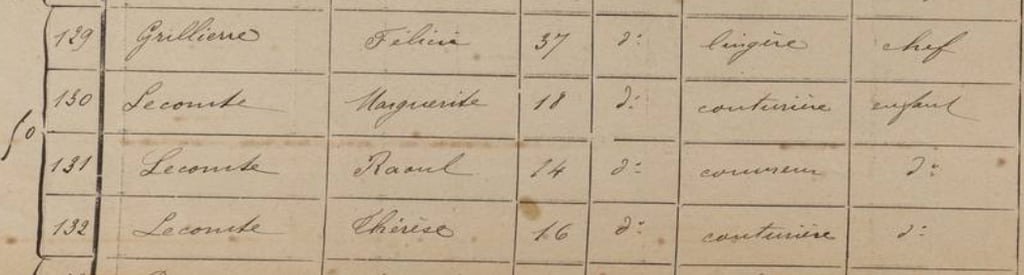 129 Grillierre Félicie 37 do lingère chef
130 Lecomte Marguerite 18 do couturière enfant
50
131 Lecomte Raoul 14 do couvreur do
132 Lecomte Thérèse 16 do couturière do